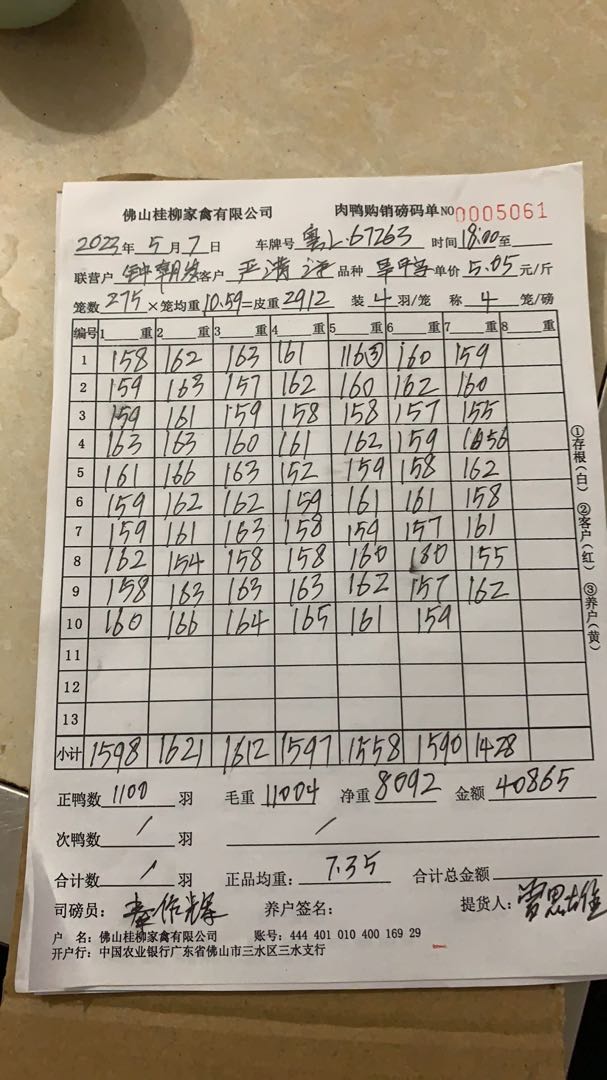 佛山桂柳家禽有限公司 肉鸭购销磅码单 NO 0005061
2023年5月7日 车牌号 粤L·67263 时间 18:00至
联营户 钟朝发 客户 品种 单价 5.05 元/斤
笼数 275 ×笼均重 10.59 =皮重 2912 装 4 羽/笼 称 4 笼/磅
编号 1 重 2 重 3 重 4 重 5 重 6 重 7 重 8 重
1 158 162 163 161 116③ 160 159
2 159 163 157 162 160 162 160
3 159 161 159 158 158 157 155
4 163 163 160 161 162 159 156
5 161 166 163 152 159 158 162
6 159 162 162 159 161 161 158
7 159 161 163 158 159 157 161
8 162 154 158 158 160 160 155
9 158 163 163 163 162 157 162
10 160 166 164 165 161 159
11
12
13
小计 1598 1621 1612 1597 1558 1590 1428
正鸭数 1100 羽 毛重 11004 净重 8092 金额 40865
次鸭数 / 羽 /
合计数 / 羽 正品均重: 7.35 合计总金额
司磅员: 养户签名: 提货人:
户 名: 佛山桂柳家禽有限公司 账号: 444 401 010 400 169 29
开户行: 中国农业银行广东省佛山市三水区三水支行
①存根(白) ②客户(红) ③养户(黄)